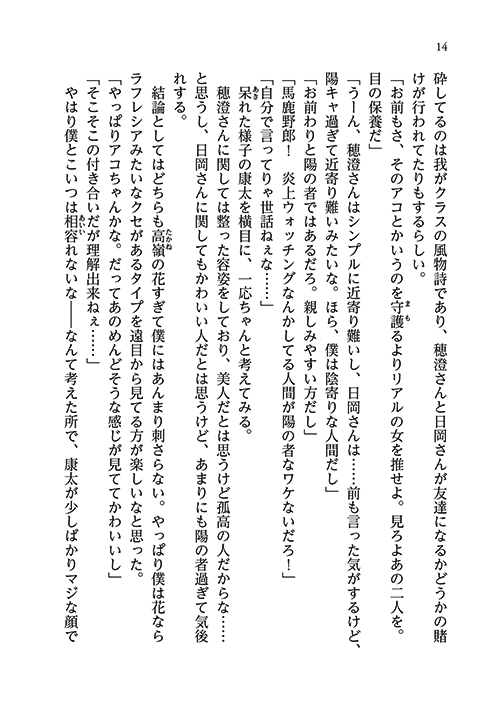 14
砕してるのは我がクラスの風物詩であり、穂澄さんと日岡さんが友達になるかどうかの賭
けが行われてたりもするらしい。
「お前もさ、そのアコとかいうのを守護るよりリアルの女を推せよ。見ろよあの二人を。
目の保養だ」
「うーん、穂澄さんはシンプルに近寄り難いし、日岡さんは……前も言った気がするけど、
陽キャ過ぎて近寄り難いみたいな。ほら、僕は陰寄りな人間だし」
「お前わりと陽の者ではあるだろ。親しみやすい方だし」
「馬鹿野郎！　炎上ウォッチングなんかしてる人間が陽の者なワケないだろ！」
「自分で言ってりゃ世話ねぇな……」
呆れた様子の康太を横目に、一応ちゃんと考えてみる。
穂澄さんに関しては整った容姿をしており、美人だとは思うけど孤高の人だからな……
と思うし、日岡さんに関してもかわいい人だとは思うけど、あまりにも陽の者過ぎて気後
れする。
結論としてはどちらも高嶺の花すぎて僕にはあんまり刺さらない。やっぱり僕は花なら
ラフレシアみたいなクセがあるタイプを遠目から見てる方が楽しいなと思った。
「やっぱりアコちゃんかな。だってあのめんどそうな感じが見ててかわいいし」
「そこそこの付き合いだが理解出来ねぇ……」
やはり僕とこいつは相容れないな――なんて考えた所で、康太が少しばかりマジな顔で